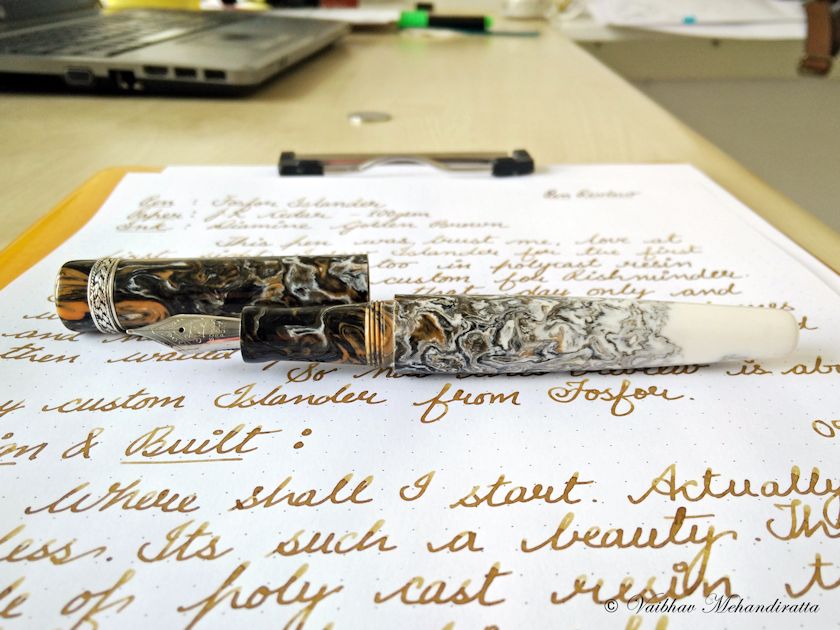 Pen Review
Pen : Fosfor Islander
Paper : J.K Cedar - 100gsm
Ink : Diamine Golden Brown
This pen was trust me, love at
first Islander for the first
too in polycast resin
custom for Rickminder.
that day only and
and
then wanted
So is abo
y custom Islander from Fosfor.
& Built :
Where shall I start. Actually
less. Its such a beauty. Th
of poly cast resin t
© Vaibhav Mehandiratta